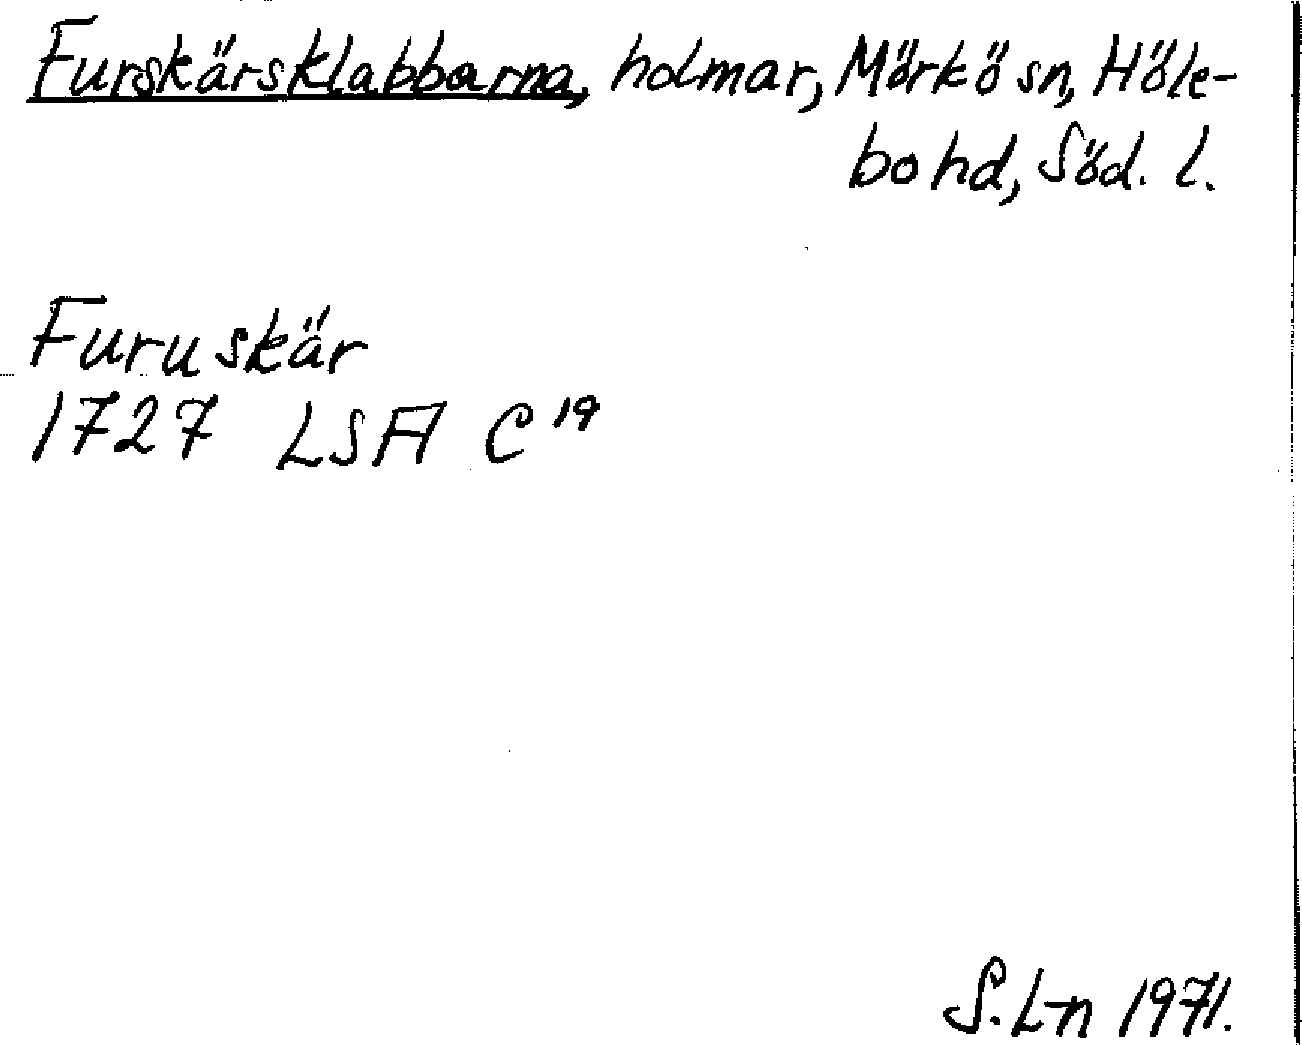 Furskärsklabbarna, holmar, Mörkö sn, Höle-
bo hd, Söd. l.
Furuskär
1727 LSA C¹⁹
S.L-n 1971.